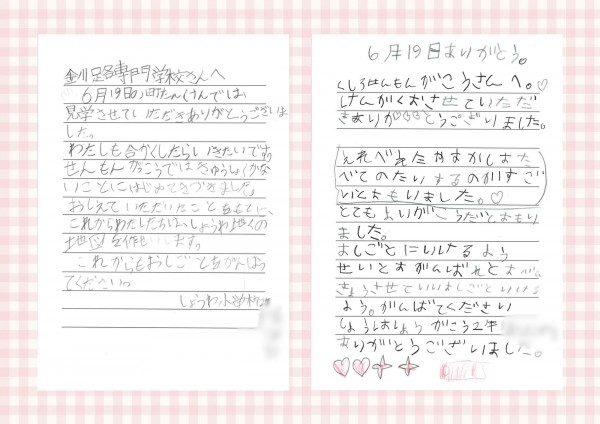 釧路専門学校さんへ
6月19日の町たんけんでは
見学させていただきありがとうございま
した。
わたしも合かくしたらいきたいです。
せんもんがっこうではきゅうしょくがな
いことにはじめてきづきました。
おしえていただいたことをもとに、
これからわたしたちは、しょうわ地くの
地図を作ります。
これからもおしごとをがんばっ
てください。
しょうわ小学校2年
6月19日ありがとう。
くしろせんもんがこうさんへ。♡
けんがくおさせていただ
きありが♡♡♡とうございました。
べてのたいするのがすご
いとおもいました。♡
とてもよいがこうだとおもい
ました。
おしごとにいけるよう
せいとおがんばれと
きょうさせていいしごといける
よう。がんばてください
しょうはしょうがこう2年
ありがとうございました。